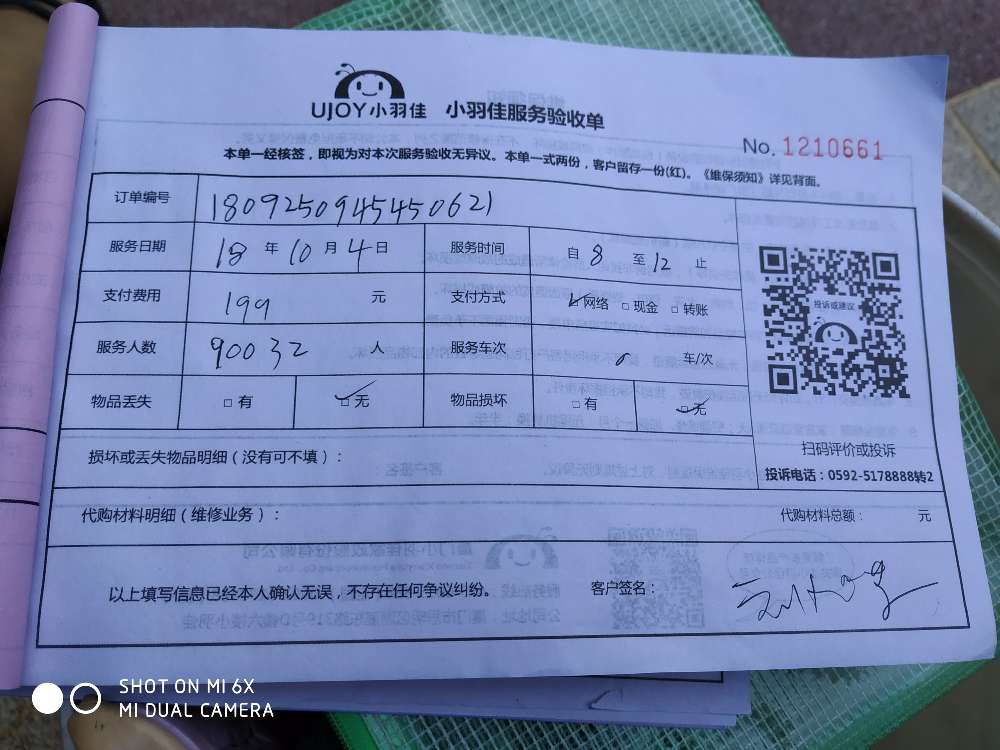 UJOY小羽佳 小羽佳服务验收单
No. 1210661
本单一经核签，即视为对本次服务验收无异议。本单一式两份，客户留存一份(红)。《维保须知》详见背面。
订单编号 180925094545450621
服务日期 18 年 10 月 4 日 服务时间 自 8 至 12 止
支付费用 199 元 支付方式 ☑网络 □现金 □转账
服务人数 90032 人 服务车次 车/次
物品丢失 □有 ☑无 物品损坏 □有 ☑无
投诉或建议
扫码评价或投诉
投诉电话：0592-5178888转2
损坏或丢失物品明细（没有可不填）：
代购材料明细（维修业务）： 代购材料总额： 元
以上填写信息已经本人确认无误，不存在任何争议纠纷。 客户签名：
SHOT ON MI 6X
MI DUAL CAMERA